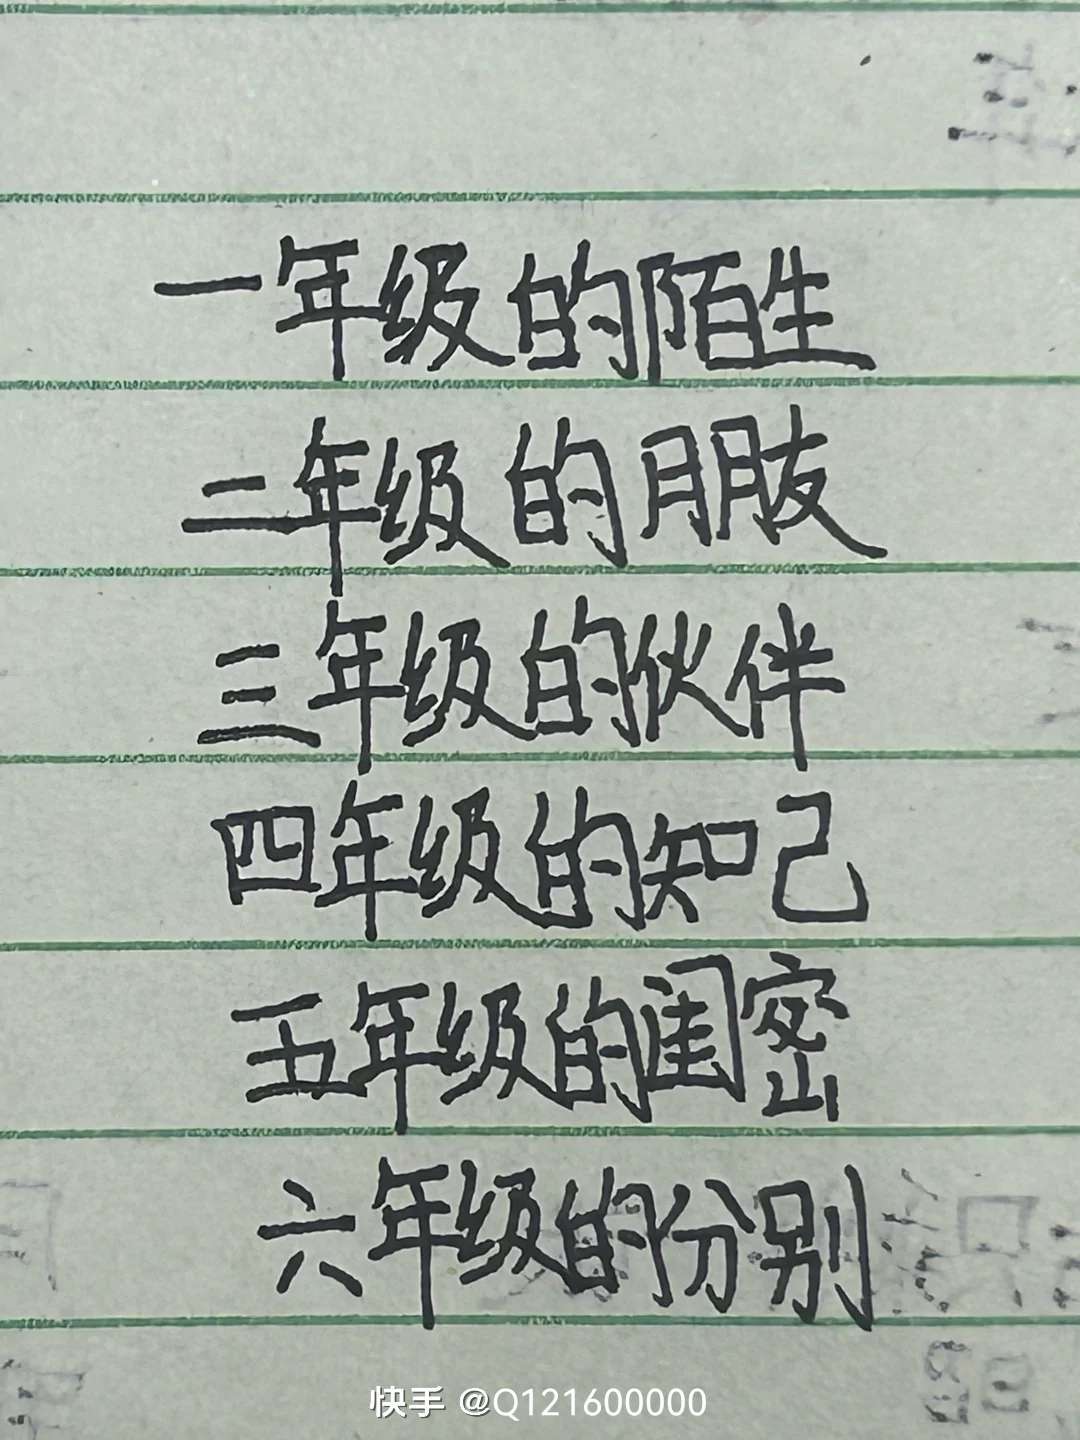 一年级的陌生
二年级的朋友
三年级的伙伴
四年级的知己
五年级的闺密
六年级的分别
快手 @Q121600000